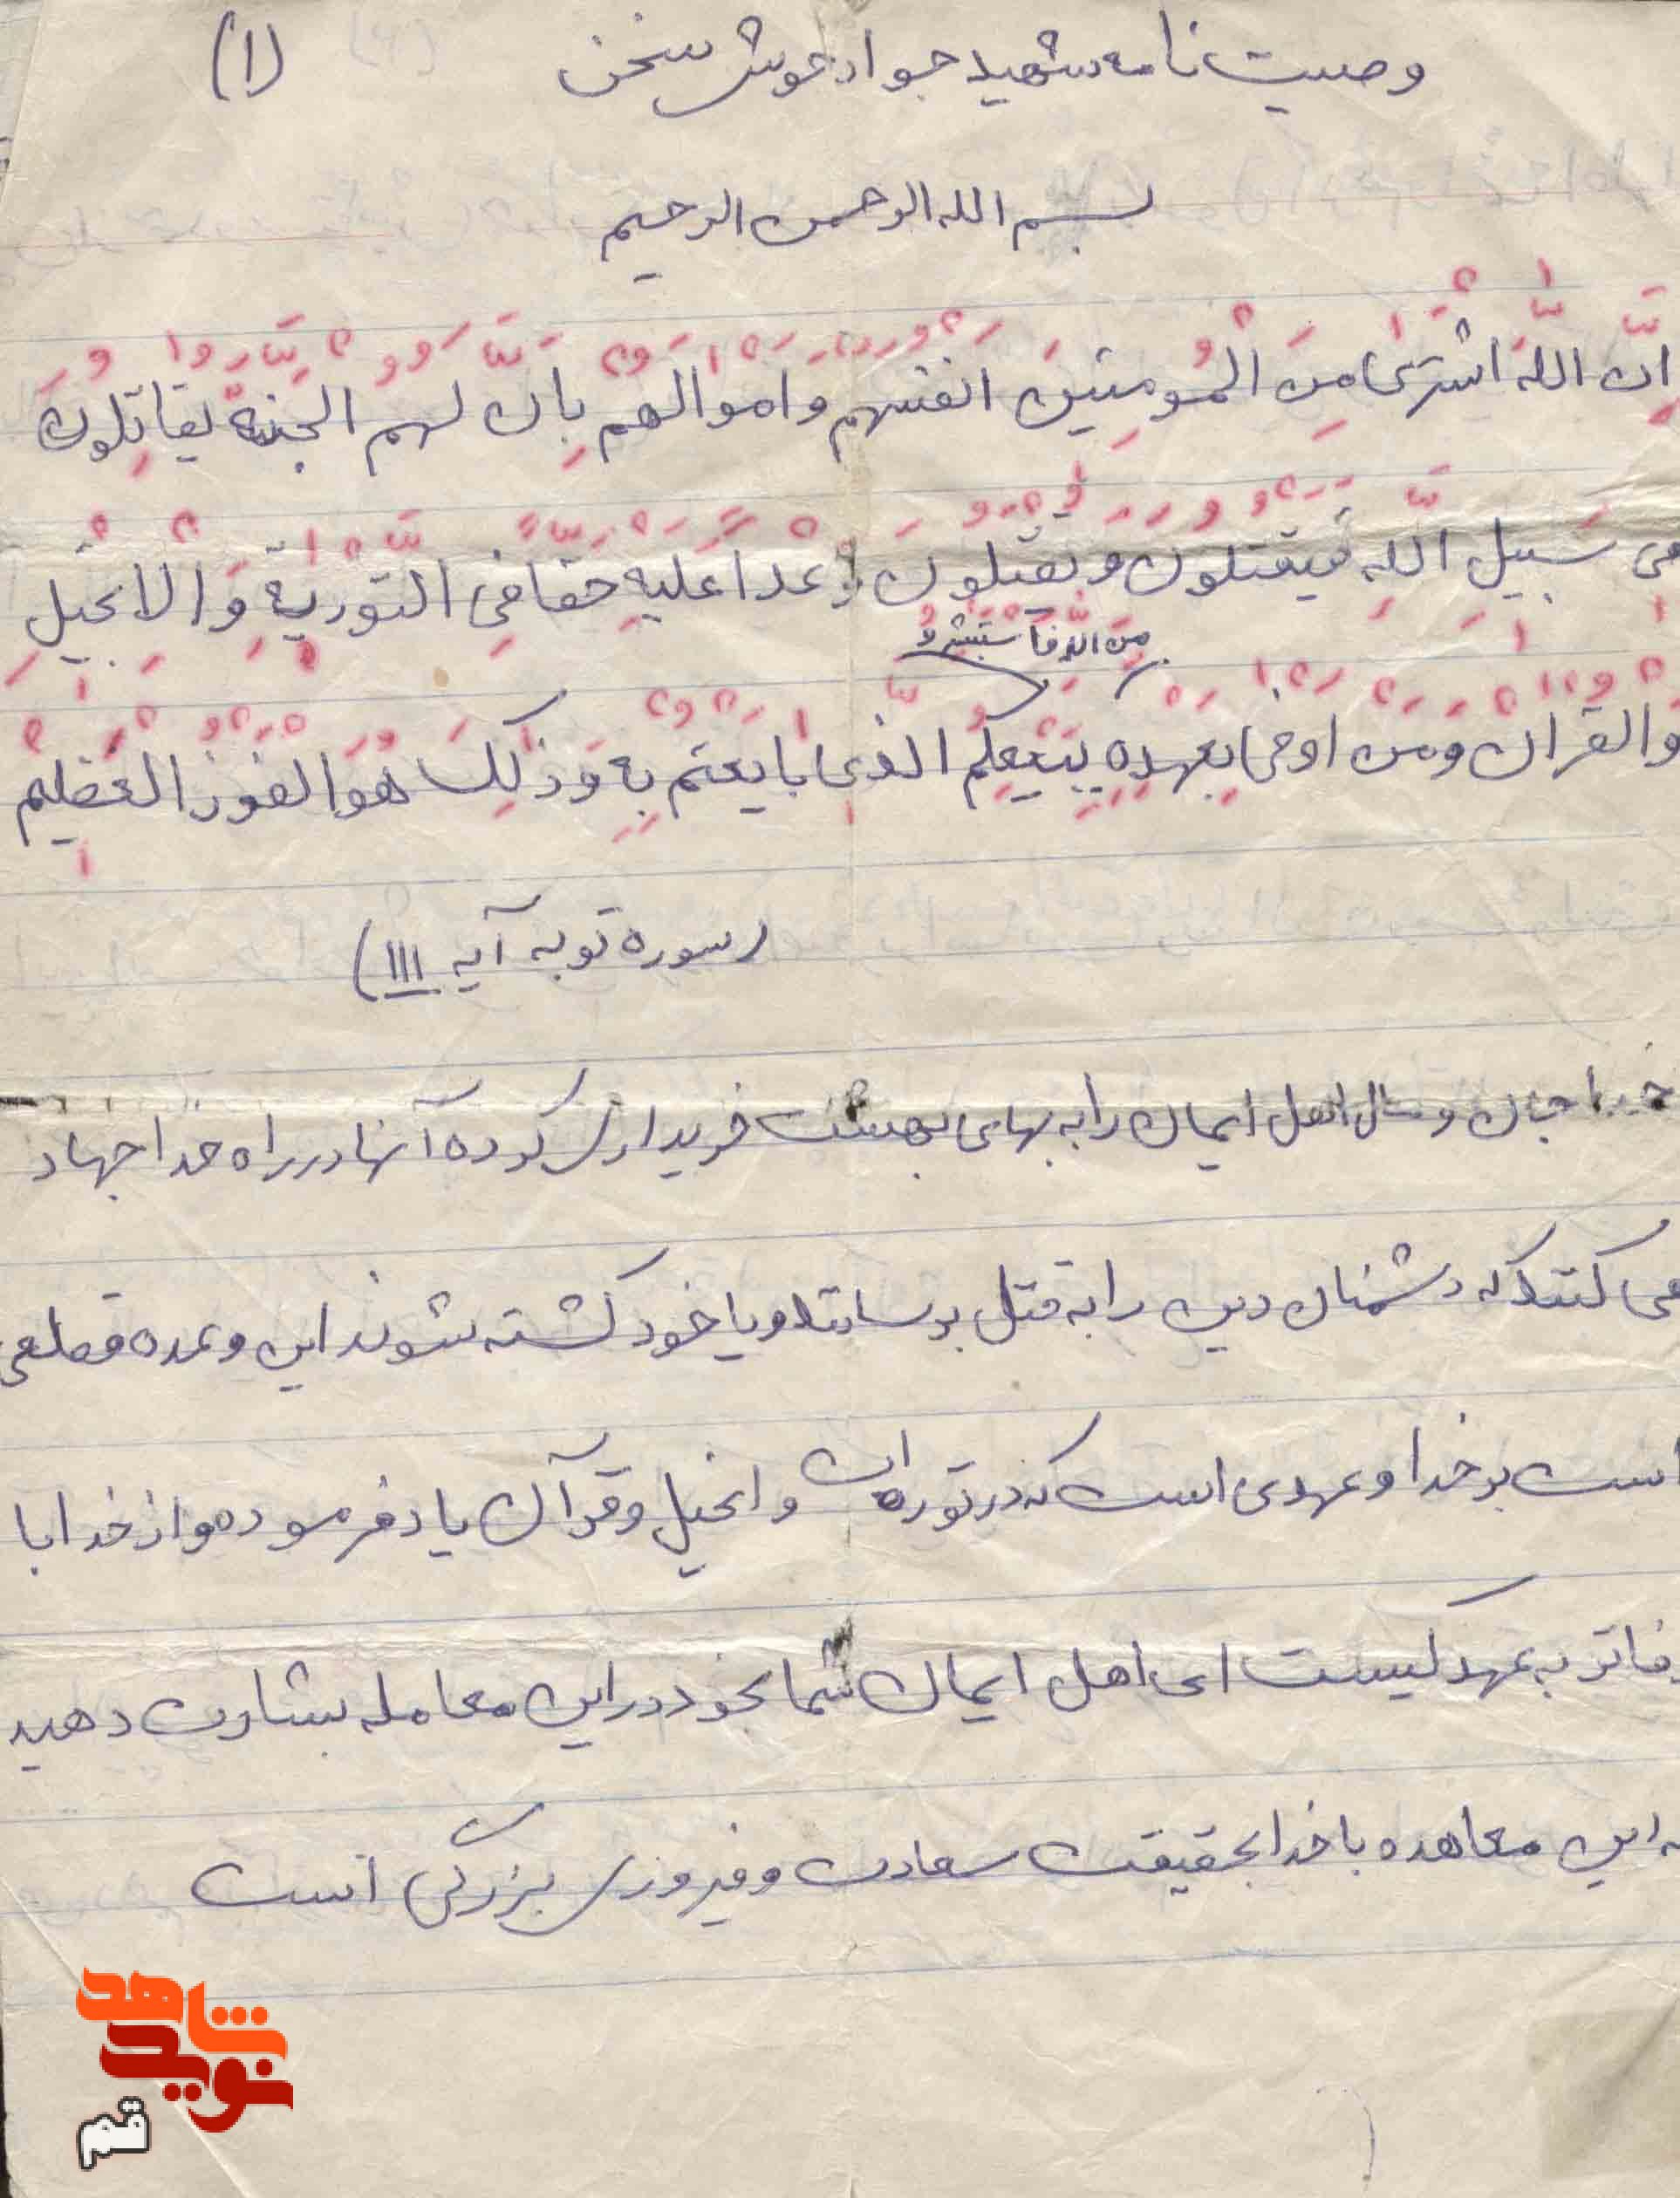 وصیت نامه شهید جواد خوش سخن (۱)
بسم الله الرحمن الرحیم
اِنَّ اللّهَ اشْتَریٰ مِنَ الْمُومِنینَ اَنْفُسَهُمْ وَاَمْوالَهُمْ بِاَنَّ لَهُمُ الْجَنَّةَ یُقاتِلُونَ
فی سَبیلِ اللّهِ فَیَقْتُلُونَ وَیُقْتَلُونَ وَعْداً عَلَیْهِ حَقّاً فِی التَّوْریٰةِ وَالْاِنْجیلِ
مِنَ اللّهِ فَاسْتَبْشِرُوا
وَالْقُرْانِ وَمَنْ اَوْفیٰ بِعَهْدِهِ بِبَیْعِکُمُ الَّذی بایَعْتُمْ بِهِ وَذٰلِکَ هُوَ الْفَوْزُ الْعَظیمُ
(سوره توبه آیه ۱۱۱)
خدا جان و مال اهل ایمان را به بهای بهشت خریداری کرده آنها در راه خدا جهاد
می کنند که دشمنان دین را به قتل برسانند و یا خود کشته شوند این وعده قطعی
است بر خدا و عهدی است که در تورات و انجیل و قرآن یاد فرموده و از خدا با
وفاتر به عهد کیست ای اهل ایمان شما بخود در این معامله بشارت دهید
که این معاهده با خدا بحقیقت سعادت و فیروزی بزرگی است
شاهد
نوید
قم